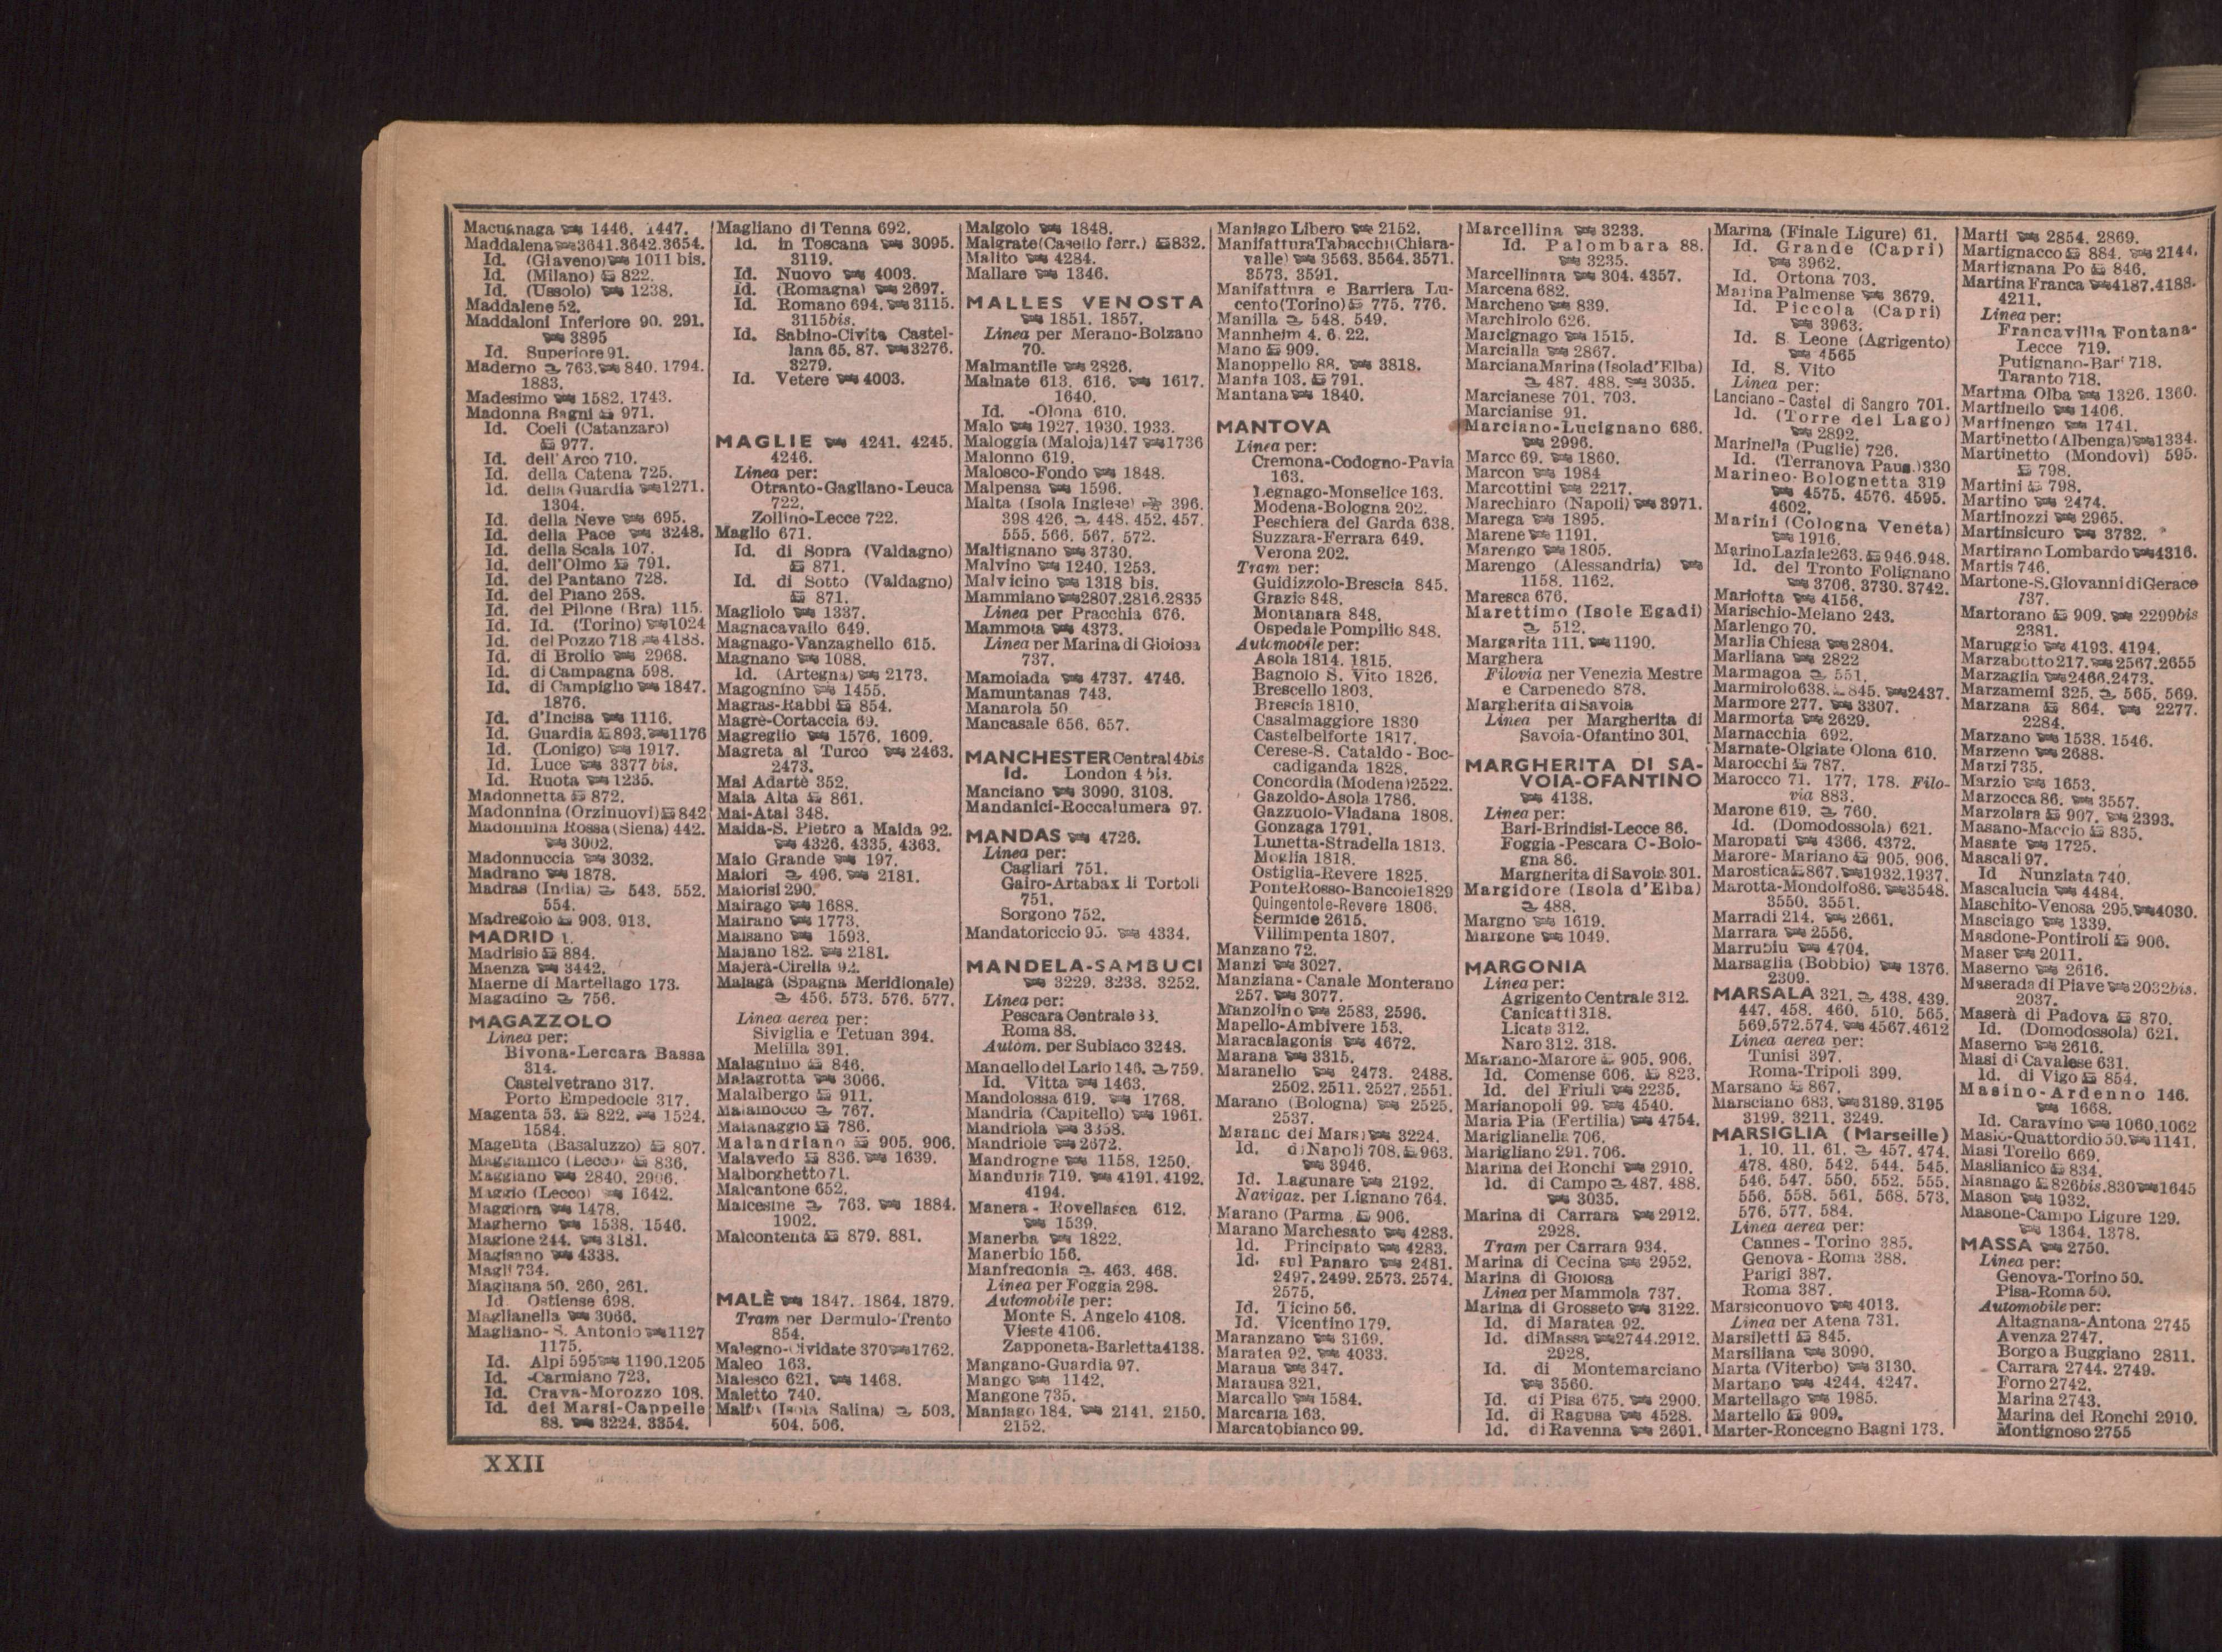 Macugnaga 1446. 1447.
Maddalena 3641.3642.3654.
Id. (Giaveno) 1011 bis.
Id. (Milano) 822.
Id. (Ussolo) 1238.
Maddalene 52.
Maddaloni Inferiore 90. 291.
3895
Id. Superiore 91.
Maderno 763. 840. 1794.
1883.
Madesimo 1582. 1743.
Madonna Bagni 971.
Id. Coeli (Catanzaro)
977.
Id. dell'Arco 710.
Id. della Catena 725.
Id. della Guardia 1271.
1304.
Id. della Neve 695.
Id. della Pace 3248.
Id. della Scala 107.
Id. dell'Olmo 791.
Id. del Pantano 728.
Id. del Piano 258.
Id. del Pilone (Bra) 115.
Id. Id. (Torino) 1024
Id. del Pozzo 718 4188.
Id. di Brolio 2968.
Id. di Campagna 598.
Id. di Campiglio 1847.
1876.
Id. d'Incisa 1116.
Id. Guardia 893. 1176
Id. (Lonigo) 1917.
Id. Luce 3377 bis.
Id. Ruota 1235.
Madonnetta 872.
Madonnina (Orzinuovi) 842
Madonnina Rossa (Siena) 442.
3002.
Madonnuccia 3032.
Madrano 1878.
Madras (India) 543. 552.
554.
Madregolo 903. 913.
MADRID 1.
Madrisio 884.
Maenza 3442.
Maerne di Martellago 173.
Magadino 756.
MAGAZZOLO
Linea per:
Bivona-Lercara Bassa
314.
Castelvetrano 317.
Porto Empedocle 317.
Magenta 53. 822. 1524.
1584.
Magenta (Basaluzzo) 807.
Maggianico (Lecco) 836.
Maggiano 2840. 2906.
Maggio (Lecco) 1642.
Maggiora 1478.
Magherno 1538. 1546.
Magione 244. 3181.
Magisano 4338.
Magli 734.
Magliana 50. 260. 261.
Id Ostiense 698.
Maglianella 3066.
Magliano-S. Antonio 1127
1175.
Id. Alpi 595 1190.1205
Id. -Carmiano 723.
Id. Crava-Morozzo 108.
Id. dei Marsi-Cappelle
88. 3224. 3354.
Magliano di Tenna 692.
Id. in Toscana 3095.
3119.
Id. Nuovo 4003.
Id. (Romagna) 2697.
Id. Romano 694. 3115.
3115bis.
Id. Sabino-Civita Castel-
lana 65. 87. 3276.
3279.
Id. Vetere 4003.
MAGLIE 4241. 4245.
4246.
Linea per:
Otranto-Gagliano-Leuca
722.
Zollino-Lecce 722.
Maglio 671.
Id. di Sopra (Valdagno)
871.
Id. di Sotto (Valdagno)
871.
Magliolo 1337.
Magnacavallo 649.
Magnago-Vanzaghello 615.
Magnano 1088.
Id. (Artegna) 2173.
Magognino 1455.
Magras-Rabbi 854.
Magrè-Cortaccia 69.
Magreglio 1576. 1609.
Magreta al Turco 2463.
2473.
Mai Adartè 352.
Maia Alta 861.
Mai-Atal 348.
Maida-S. Pietro a Maida 92.
4326. 4335. 4363.
Maio Grande 197.
Maiori 496. 2181.
Maiorisi 290.
Mairago 1688.
Mairano 1773.
Maisano 1593.
Majano 182. 2181.
Majerà-Cirella 92.
Malaga (Spagna Meridionale)
456. 573. 576. 577.
Linea aerea per:
Siviglia e Tetuan 394.
Melilla 391.
Malagnino 846.
Malagrotta 3066.
Malalbergo 911.
Malamocco 767.
Malanaggio 786.
Malandriano 905. 906.
Malavedo 836. 1639.
Malborghetto 71.
Malcantone 652.
Malcesine 763. 1884.
1902.
Malcontenta 879. 881.
MALÈ 1847. 1864. 1879.
Tram per Dermulo-Trento
854.
Malegno-Cividate 370 1762.
Maleo 163.
Malesco 621. 1468.
Maletto 740.
Malfa (Isola Salina) 503.
504. 506.
Malgolo 1848.
Malgrate (Casello ferr.) 832.
Malito 4284.
Mallare 1346.
MALLES VENOSTA
1851. 1857.
Linea per Merano-Bolzano
70.
Malmantile 2826.
Malnate 613. 616. 1617.
1640.
Id. -Olona 610.
Malo 1927. 1930. 1933.
Maloggia (Maloja) 147 1736
Malonno 619.
Malosco-Fondo 1848.
Malpensa 1596.
Malta (Isola Inglese) 396.
398 426. 448. 452. 457.
555. 566. 567. 572.
Maltignano 3730.
Malvino 1240. 1253.
Malvicino 1318 bis.
Mammiano 2807.2816.2835
Linea per Pracchia 676.
Mammola 4373.
Linea per Marina di Gioiosa
737.
Mamoiada 4737. 4746.
Mamuntanas 743.
Manarola 50
Mancasale 656. 657.
MANCHESTER Central 4bis
Id. London 4 bis.
Manciano 3090. 3108.
Mandanici-Roccalumera 97.
MANDAS 4726.
Linea per:
Cagliari 751.
Gairo-Artabax li Tortoli
751.
Sorgono 752.
Mandatoriccio 95. 4334.
MANDELA-SAMBUCI
3229. 3238. 3252.
Linea per:
Pescara Centrale 88.
Roma 88.
Autom. per Subiaco 3248.
Mandello del Lario 146. 759.
Id. Vitta 1463.
Mandolossa 619. 1768.
Mandria (Capitello) 1961.
Mandriola 3358.
Mandriole 2672.
Mandrogne 1158. 1250.
Manduria 719. 4191. 4192.
4194.
Manera - Rovellasca 612.
1539.
Manerba 1822.
Manerbio 156.
Manfredonia 463. 468.
Linea per Foggia 298.
Automobile per:
Monte S. Angelo 4108.
Vieste 4106.
Zapponeta-Barletta 4138.
Mangano-Guardia 97.
Mango 1142.
Mangone 735.
Maniago 184. 2141. 2150.
2152.
Maniago Libero 2152.
Manifattura Tabacchi (Chiara-
valle) 3563. 3564. 3571.
3573. 3591.
Manifattura e Barriera Lu-
cento (Torino) 775. 776.
Manilla 548. 549.
Mannheim 4. 6. 22.
Mano 909.
Manoppello 88. 3818.
Manta 103. 791.
Mantana 1840.
MANTOVA
Linea per:
Cremona-Codogno-Pavia
163.
Legnago-Monselice 163.
Modena-Bologna 202.
Peschiera del Garda 638.
Suzzara-Ferrara 649.
Verona 202.
Tram per:
Guidizzolo-Brescia 845.
Grazie 848.
Montanara 848.
Ospedale Pompilio 848.
Automobile per:
Asola 1814. 1815.
Bagnolo S. Vito 1826.
Brescello 1803.
Brescia 1810.
Casalmaggiore 1830
Castelbelforte 1817.
Cerese-S. Cataldo - Boc-
cadiganda 1828.
Concordia (Modena) 2522.
Gazoldo-Asola 1786.
Gazzuolo-Viadana 1808.
Gonzaga 1791.
Lunetta-Stradella 1813.
Moglia 1818.
Ostiglia-Revere 1825.
Ponte Rosso-Bancole 1829
Quingentole-Revere 1806.
Sermide 2615.
Villimpenta 1807.
Manzano 72.
Manzi 3027.
Manziana - Canale Monterano
257. 3077.
Manzolino 2583. 2596.
Mapello-Ambivere 153.
Maracalagonis 4672.
Marana 3315.
Maranello 2473. 2488.
2502. 2511. 2527. 2551.
Marano (Bologna) 2525.
2537.
Marano dei Marsi 3224.
Id. di Napoli 708. 963.
3946.
Id. Lagunare 2192.
Navigaz. per Lignano 764.
Marano (Parma 906.
Marano Marchesato 4283.
Id. Principato 4283.
Id. sul Panaro 2481.
2497. 2499. 2573. 2574.
2575.
Id. Ticino 56.
Id. Vicentino 179.
Maranzano 3169.
Maratea 92. 4033.
Maraua 347.
Marausa 321.
Marcallo 1584.
Marcaria 163.
Marcatobianco 99.
Marcellina 3233.
Id. Palombara 88.
3235.
Marcellinara 304. 4357.
Marcena 682.
Marcheno 839.
Marchirolo 626.
Marcignago 1515.
Marcialla 2867.
Marciana Marina (Isola d'Elba)
487. 488. 3035.
Marcianese 701. 703.
Marcianise 91.
Marciano-Lucignano 686.
2996.
Marco 69. 1860.
Marcon 1984
Marcottini 2217.
Marechiaro (Napoli) 3971.
Marega 1895.
Marene 1191.
Marengo 1805.
Marengo (Alessandria)
1158. 1162.
Maresca 676.
Marettimo (Isole Egadi)
512.
Margarita 111. 1190.
Marghera
Filovia per Venezia Mestre
e Carpenedo 878.
Margherita di Savoia
Linea per Margherita di
Savoia-Ofantino 301.
MARGHERITA DI SA-
VOIA-OFANTINO
4138.
Linea per:
Bari-Brindisi-Lecce 86.
Foggia-Pescara C-Bolo-
gna 86.
Margherita di Savoia 301.
Margidore (Isola d'Elba)
488.
Margno 1619.
Margone 1049.
MARGONIA
Linea per:
Agrigento Centrale 312.
Canicattì 318.
Licata 312.
Naro 312. 318.
Mariano-Marore 905. 906.
Id. Comense 606. 823.
Id. del Friuli 2235.
Marianopoli 99. 4540.
Maria Pia (Fertilia) 4754.
Mariglianella 706.
Marigliano 291. 706.
Marina dei Ronchi 2910.
Id. di Campo 487. 488.
3035.
Marina di Carrara 2912.
2928.
Tram per Carrara 934.
Marina di Cecina 2952.
Marina di Gioiosa
Linea per Mammola 737.
Marina di Grosseto 3122.
Id. di Maratea 92.
Id. di Massa 2744.2912.
2928.
Id. di Montemarciano
3560.
Id. di Pisa 675. 2900.
Id. di Ragusa 4528.
Id. di Ravenna 2691.
Marina (Finale Ligure) 61.
Id. Grande (Capri)
3962.
Id. Ortona 703.
Marina Palmense 3679.
Id. Piccola (Capri)
3963.
Id. S. Leone (Agrigento)
4565
Id. S. Vito
Linea per:
Lanciano - Castel di Sangro 701.
Id. (Torre del Lago)
2892.
Marinella (Puglie) 726.
Id. (Terranova Paus.) 330
Marineo-Bolognetta 319
4575. 4576. 4595.
4602.
Marini (Cologna Veneta)
1916.
Marino Laziale 263. 946.948.
Id. del Tronto Folignano
3706. 3730. 3742.
Mariotta 4156.
Marischio-Melano 243.
Marlengo 70.
Marlia Chiesa 2804.
Marliana 2822
Marmagoa 551.
Marmirolo 638. 845. 2437.
Marmore 277. 3307.
Marmorta 2629.
Marnacchia 692.
Marnate-Olgiate Olona 610.
Marocchi 787.
Marocco 71. 177. 178. Filo-
via 883.
Marone 619. 760.
Id. (Domodossola) 621.
Maropati 4366. 4372.
Marore-Mariano 905. 906.
Marostica 867. 1932.1937.
Marotta-Mondolfo 86. 3548.
3550. 3551.
Marradi 214. 2661.
Marrara 2556.
Marrubiu 4704.
Marsaglia (Bobbio) 1376.
2309.
MARSALA 321. 438. 439.
447. 458. 460. 510. 565.
569.572.574. 4567.4612
Linea aerea per:
Tunisi 397.
Roma-Tripoli 399.
Marsano 867.
Marsciano 683. 3189.3195
3199. 3211. 3249.
MARSIGLIA (Marseille)
1. 10. 11. 61. 457. 474.
478. 480. 542. 544. 545.
546. 547. 550. 552. 555.
556. 558. 561. 568. 573.
576. 577. 584.
Linea aerea per:
Cannes - Torino 385.
Genova - Roma 388.
Parigi 387.
Roma 387.
Marsiconuovo 4013.
Linea per Atena 731.
Marsiletti 845.
Marsiliana 3090.
Marta (Viterbo) 3130.
Martano 4244. 4247.
Martellago 1985.
Martello 909.
Marter-Roncegno Bagni 173.
Marti 2854. 2869.
Martignacco 884. 2144.
Martignana Po 846.
Martina Franca 4187.4188.
4211.
Linea per:
Francavilla Fontana-
Lecce 719.
Putignano-Bari 718.
Taranto 718.
Martina Olba 1326. 1360.
Martinello 1406.
Martinengo 1741.
Martinetto (Albenga) 1334.
Martinetto (Mondovì) 595.
798.
Martini 798.
Martino 2474.
Martinozzi 2965.
Martinsicuro 3732.
Martirano Lombardo 4316.
Martis 746.
Martone-S. Giovanni di Gerace
737.
Martorano 909. 2299bis
2381.
Maruggio 4193. 4194.
Marzabotto 217. 2567.2655
Marzaglia 2466.2473.
Marzamemi 325. 565. 569.
Marzana 864. 2277.
2284.
Marzano 1538. 1546.
Marzeno 2688.
Marzi 735.
Marzio 1653.
Marzocca 86. 3557.
Marzolara 907. 2393.
Masano-Maccio 835.
Masate 1725.
Mascali 97.
Id Nunziata 740.
Mascalucia 4484.
Maschito-Venosa 295. 4030.
Masciago 1339.
Masdone-Pontiroli 906.
Maser 2011.
Maserno 2616.
Maserada di Piave 2032bis.
2037.
Maserà di Padova 870.
Id. (Domodossola) 621.
Maserno 2616.
Masi di Cavalese 631.
Id. di Vigo 854.
Masino-Ardenno 146.
1668.
Id. Caravino 1060.1062
Masio-Quattordio 50. 1141.
Masi Torello 669.
Maslianico 834.
Masnago 826bis.830 1645
Mason 1932.
Masone-Campo Ligure 129.
1364. 1378.
MASSA 2750.
Linea per:
Genova-Torino 50.
Pisa-Roma 50.
Automobile per:
Altagnana-Antona 2745
Avenza 2747.
Borgo a Buggiano 2811.
Carrara 2744. 2749.
Forno 2742.
Marina 2743.
Marina dei Ronchi 2910.
Montignoso 2755
XXII